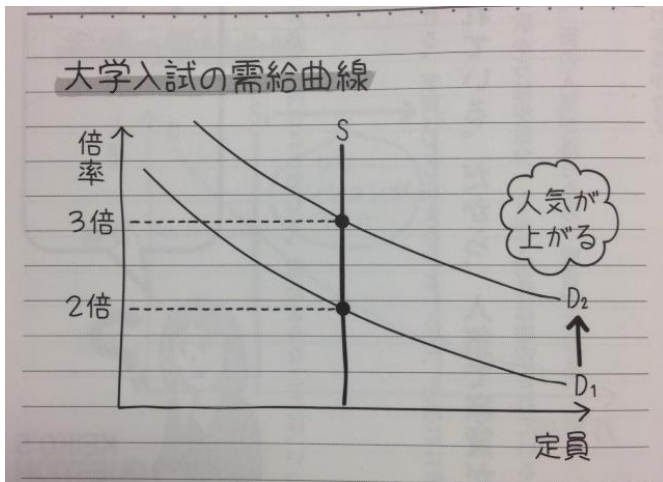 大学入試の需給曲線
倍
率
S
3倍
人気が
上がる
2倍
D2
D1
定員